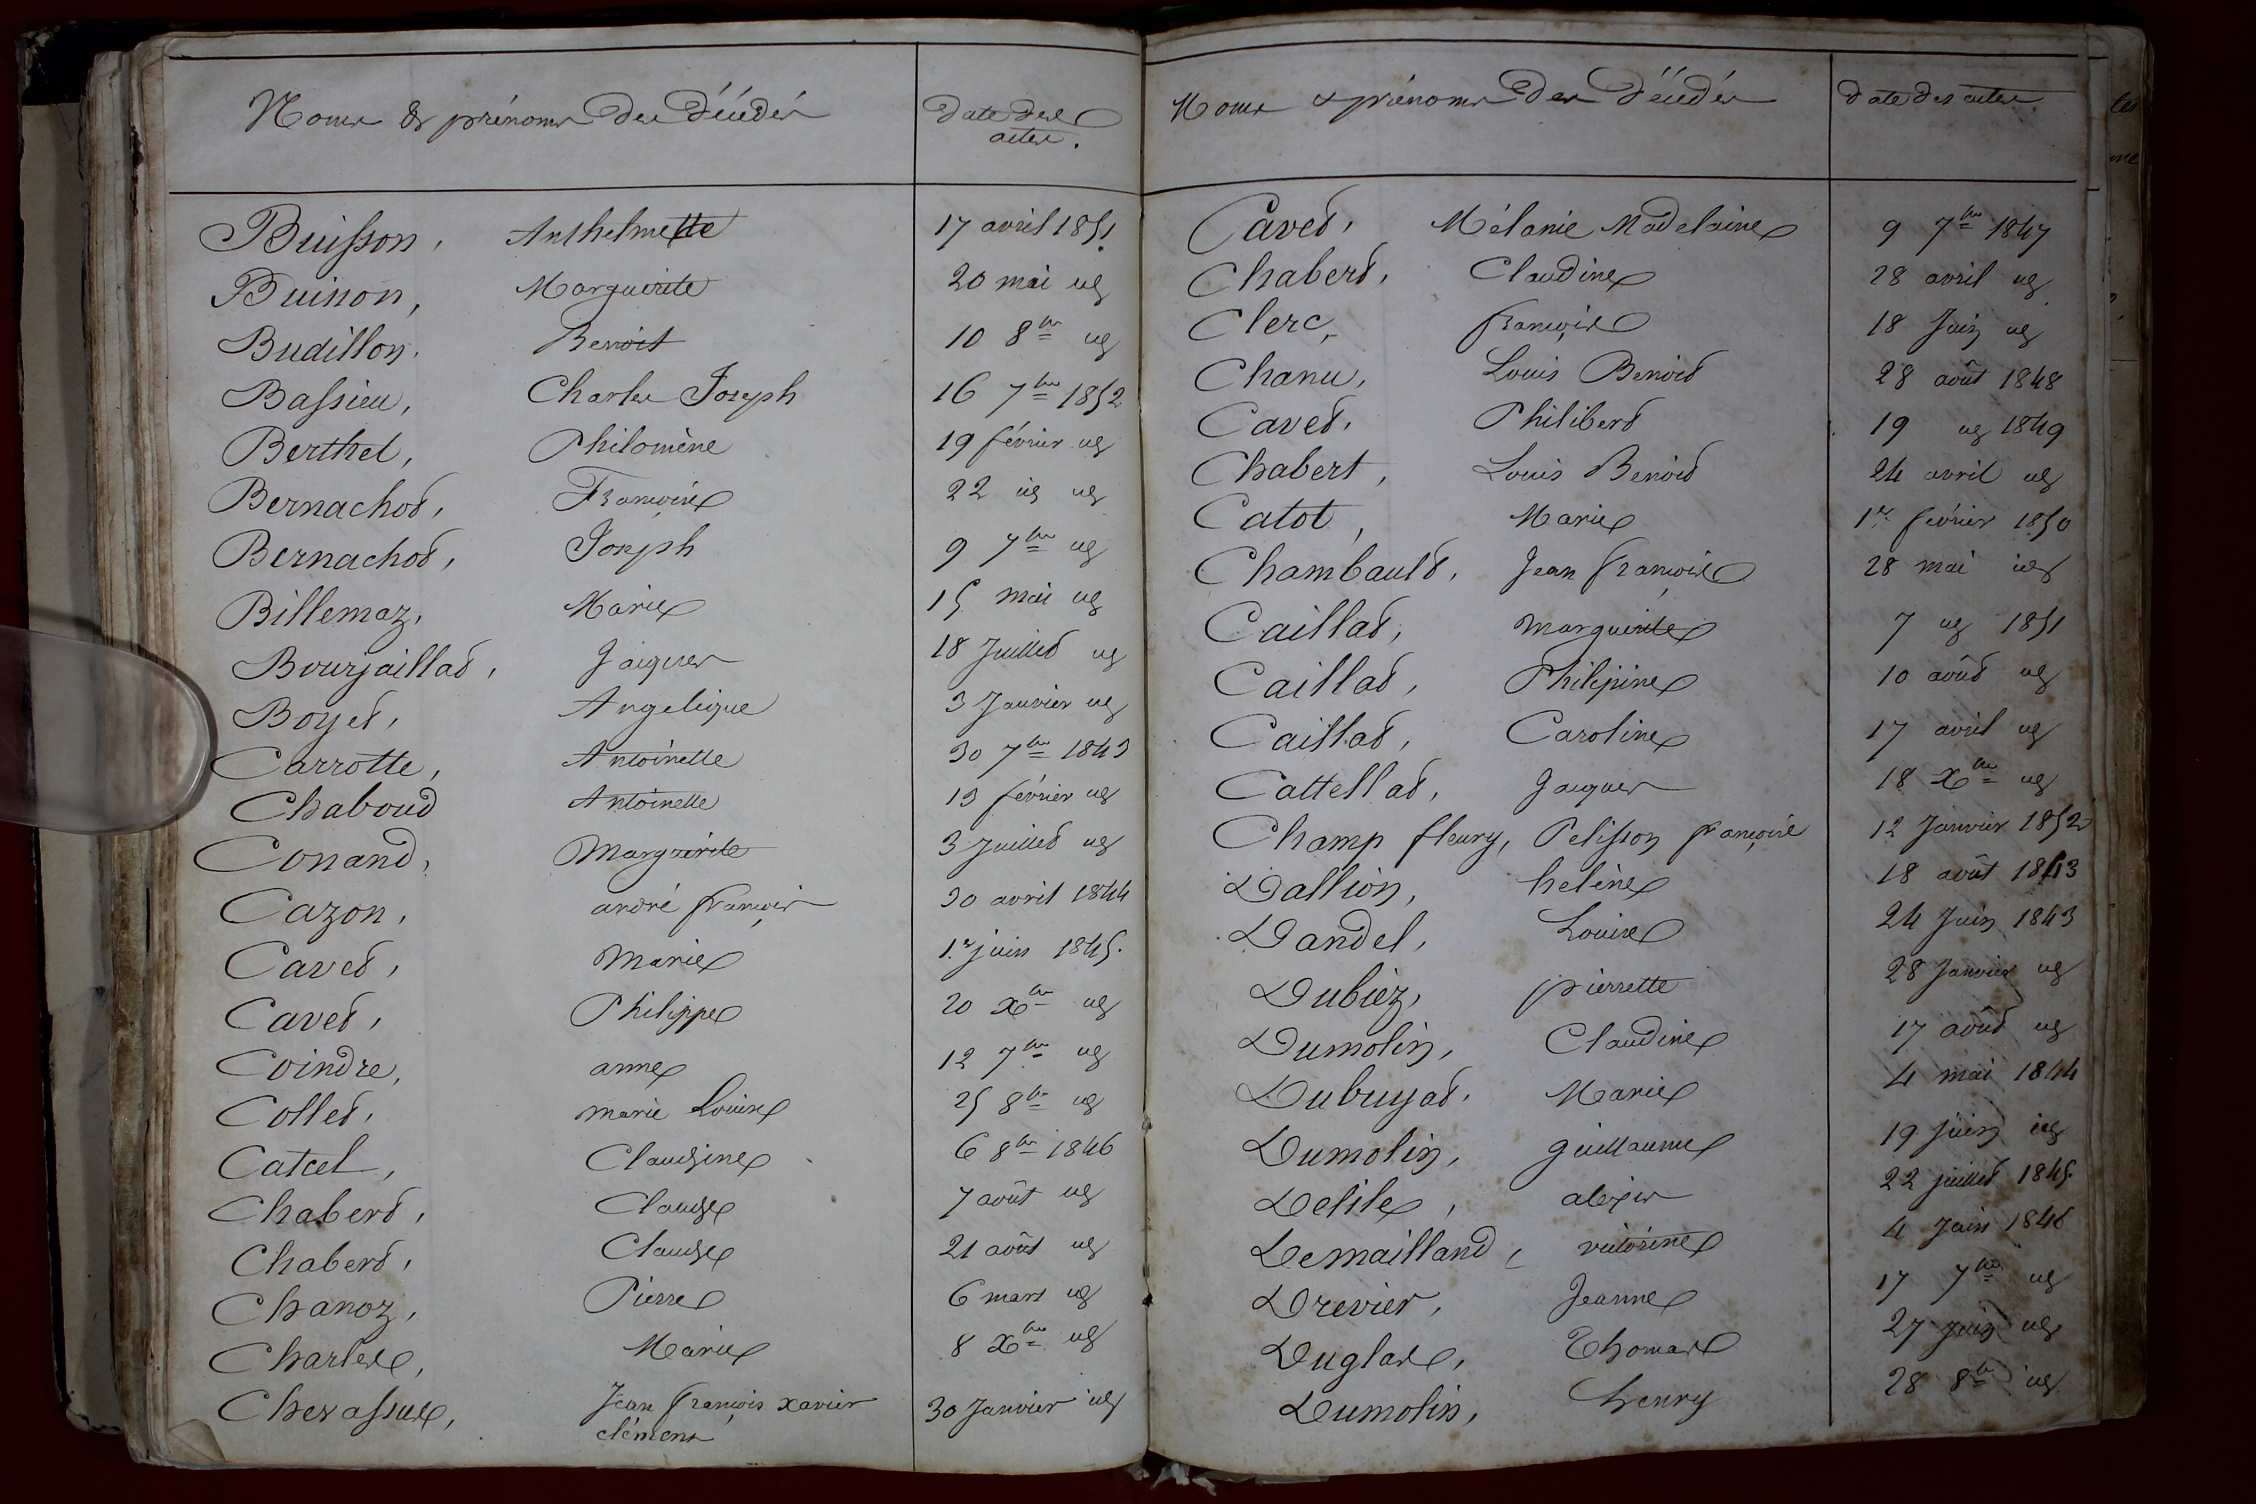 Noms & prénoms des Décédés
Date des
actes.
Buisson, Anthelmette 17 avril 1851
Buisson, Marguerite 20 mai id
Budillon, Benoit 10 8bre id
Bassieu, Charles Joseph 16 7bre 1852
Berthet, Philomène 19 février id
Bernachot, Françoise 22 id id
Bernachot, Joseph 9 7bre id
Billemaz, Marie 15 mai id
Bourjaillat, Jacques 18 Juillet id
Boyet, Angelique 3 Janvier id
Carrotte, Antoinette 30 7bre 1843
Chaboud Antoinette 13 février id
Conand, Marguerite 3 Juillet id
Cazon, andré françois 30 avril 1844
Cavet, Marie 1er juin 1845.
Cavet, Philippe 20 Xbre id
Coindre, anne 12 7bre id
Collet, marie Louise 25 8bre id
Catcel, Claudine 6 8bre 1846
Chabert, Claude 7 août id
Chabert, Claude 21 août id
Chanoz, Pierre 6 mars id
Charles, Marie 8 Xbre id
Chevassus, Jean françois xavier 30 Janvier id
clément
Noms & prénoms des Décédés
Date des actes.
Cavet, Mélanie Madelaine 9 7bre 1847
Chabert, Claudine 28 avril id
Clerc, françois 18 Juin id
Chanu, Louis Benoit 28 août 1848
Cavet, Philibert 19 id 1849
Chabert, Louis Benoit 24 avril id
Catot, Marie 1er février 1850
Chambault, Jean françois 28 mai id
Caillat, Marguerite 7 id 1851
Caillat, Philipine 10 août id
Caillat, Caroline 17 avril id
Cattellat, Jacques 18 Xbre id
Champ fleury, Pelisson françoise 12 Janvier 1852
Dallion, heline 18 août 1843
Dandel, Louise 24 Juin 1843
Dubiez, pierrette 28 Janvier id
Dumolin, Claudine 17 août id
Dubuyat, Marie 4 mai 1844
Dumolin, guillaume 19 juin id
Delile, alexis 22 juillet 1845.
Demailland, victorine 4 Juin 1846
Drevier, Jeanne 17 7bre id
Duglas, Thomas 27 juin id
Dumolin, henry 28 8bre id